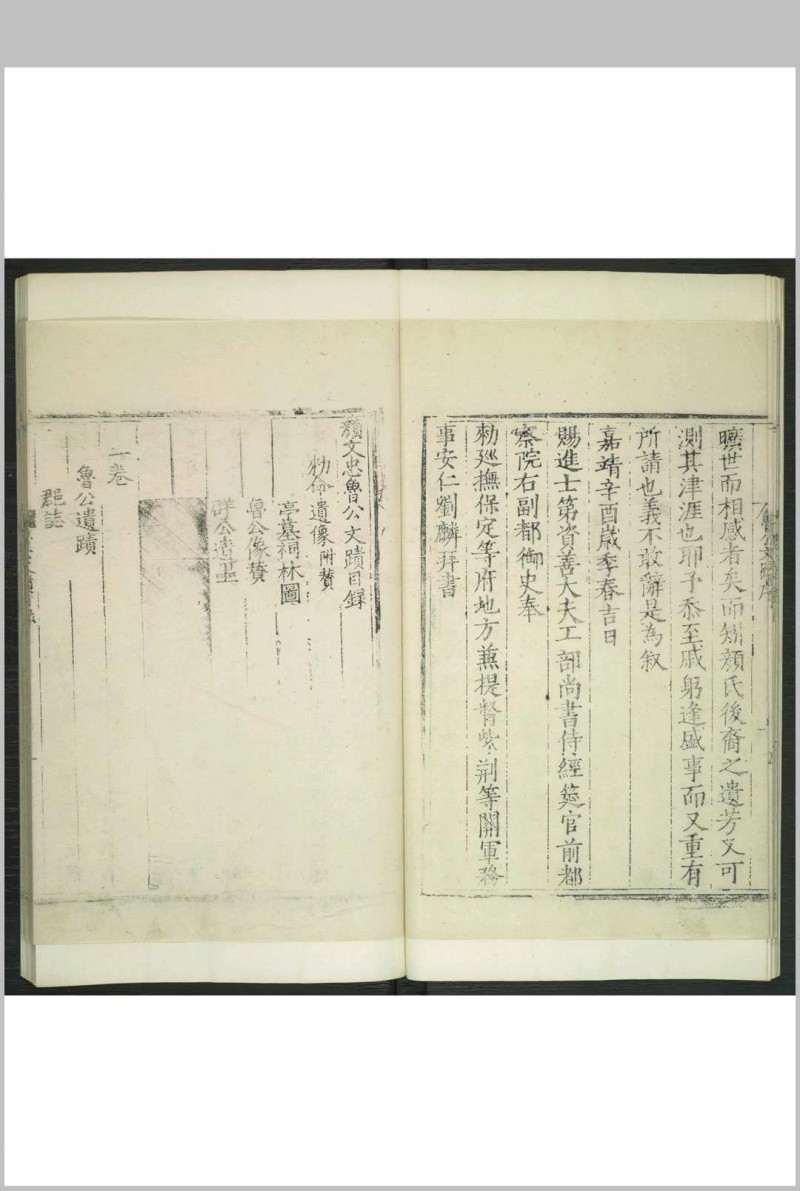 曠世而相感者矣而矧顔氏後裔之遺芳又可
測其津涯也耶予忝至戚躬逢盛事而又重有
所請也義不敢辭是為叙
嘉靖辛酉歲季春吉日
賜進士第資善大夫工部尚書侍經筵官前都
察院右副都御史奉
勑廵撫保定等府地方蕪提督紫荆等關軍務
事安仁劉麟拜書
顔文忠魯公文蹟目録
遺像附贊
亭墓祠林圖
魯公像贊
一卷
魯公遺蹟
郡誌